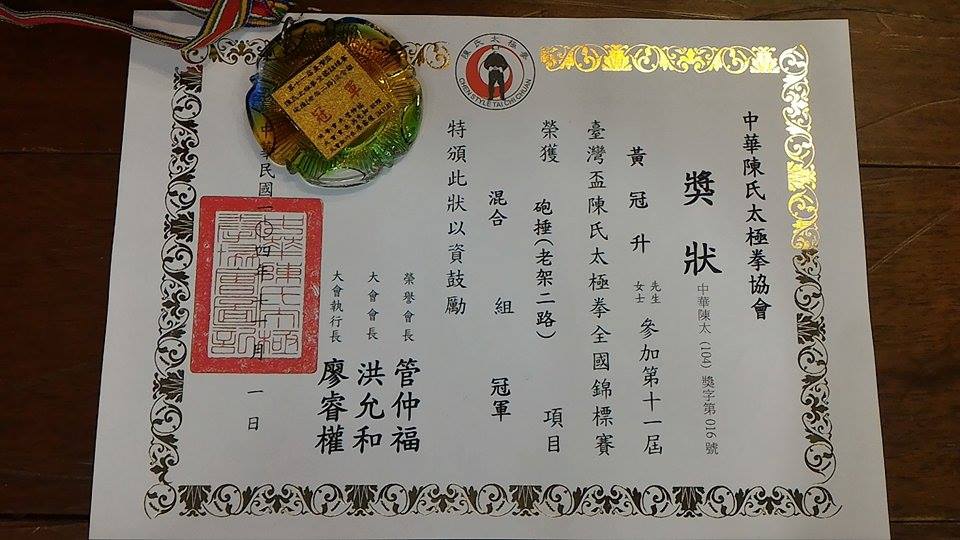 中華陳氏太極拳協會
獎狀
中華陳太 (104) 獎字第 016 號
黃冠升 先生 女士 參加第十一屆
臺灣盃陳氏太極拳全國錦標賽
榮獲 砲捶(老架二路) 項目
混合 組 冠軍
特頒此狀以資鼓勵
榮譽會長 管仲福
大會會長 洪允和
大會執行長 廖睿權
月 一 日
陳氏太極拳
CHEN STYLE TAI CHI CHUAN
冠軍